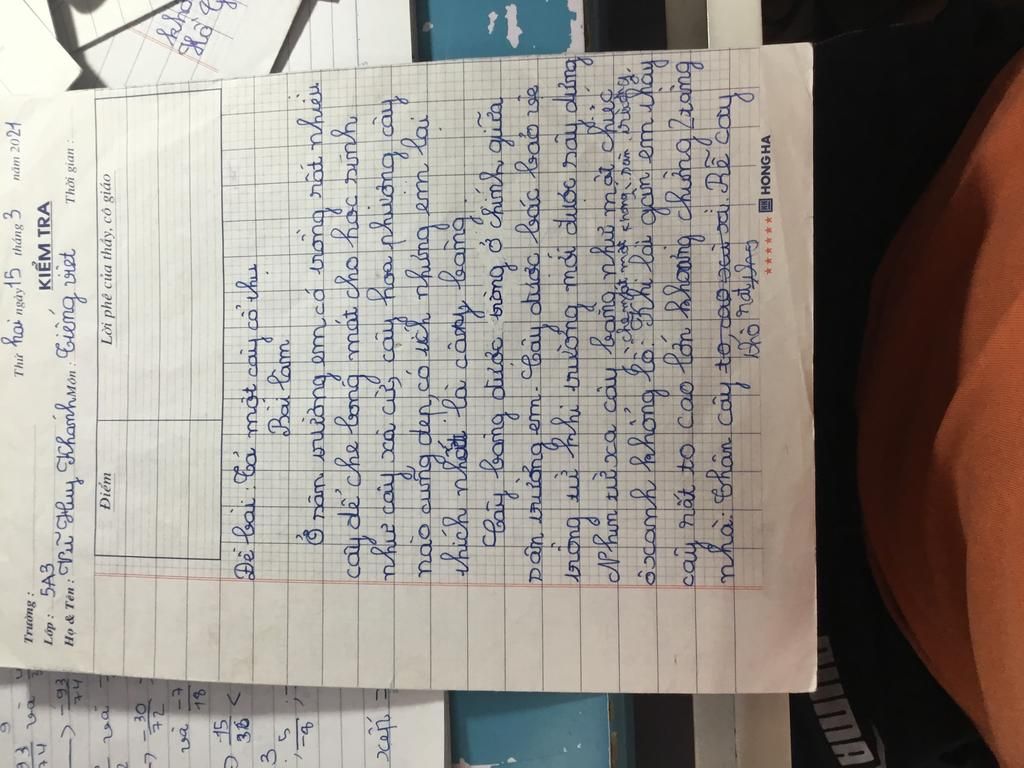 Thứ hai ngày 15 tháng 3 năm 2021
Trường:
KIỂM TRA
Lớp: 5A3
Họ & Tên: Vũ Huy Khánh Môn: Tiếng việt Thời gian:
Điểm
Lời phê của thầy, cô giáo
Đề bài: Tả một cây cổ thụ.
Bài làm
Ở sân trường em có trồng rất nhiều
cây để che bóng mát cho học sinh
như cây xà cừ, cây hoa phượng cây
nào cũng đẹp, có ích nhưng em lại
thích nhất là cây bàng.
Cây bàng được trồng ở chính giữa
sân trường em. Cây được bác bảo vệ
trồng từ khi trường mới được xây dựng
Nhìn từ xa cây bàng như một chiếc
ô xanh khổng lồ che mát một khoảng sân trường. Khi lại gần em thấy
cây rất to cao lớn khoảng chừng 2 tầng
nhà. Thân cây to cao xù xì. Rễ cây
HONG HA
9
-93
74
và
-30
72
và
-7
18
-15
38
<
3
5